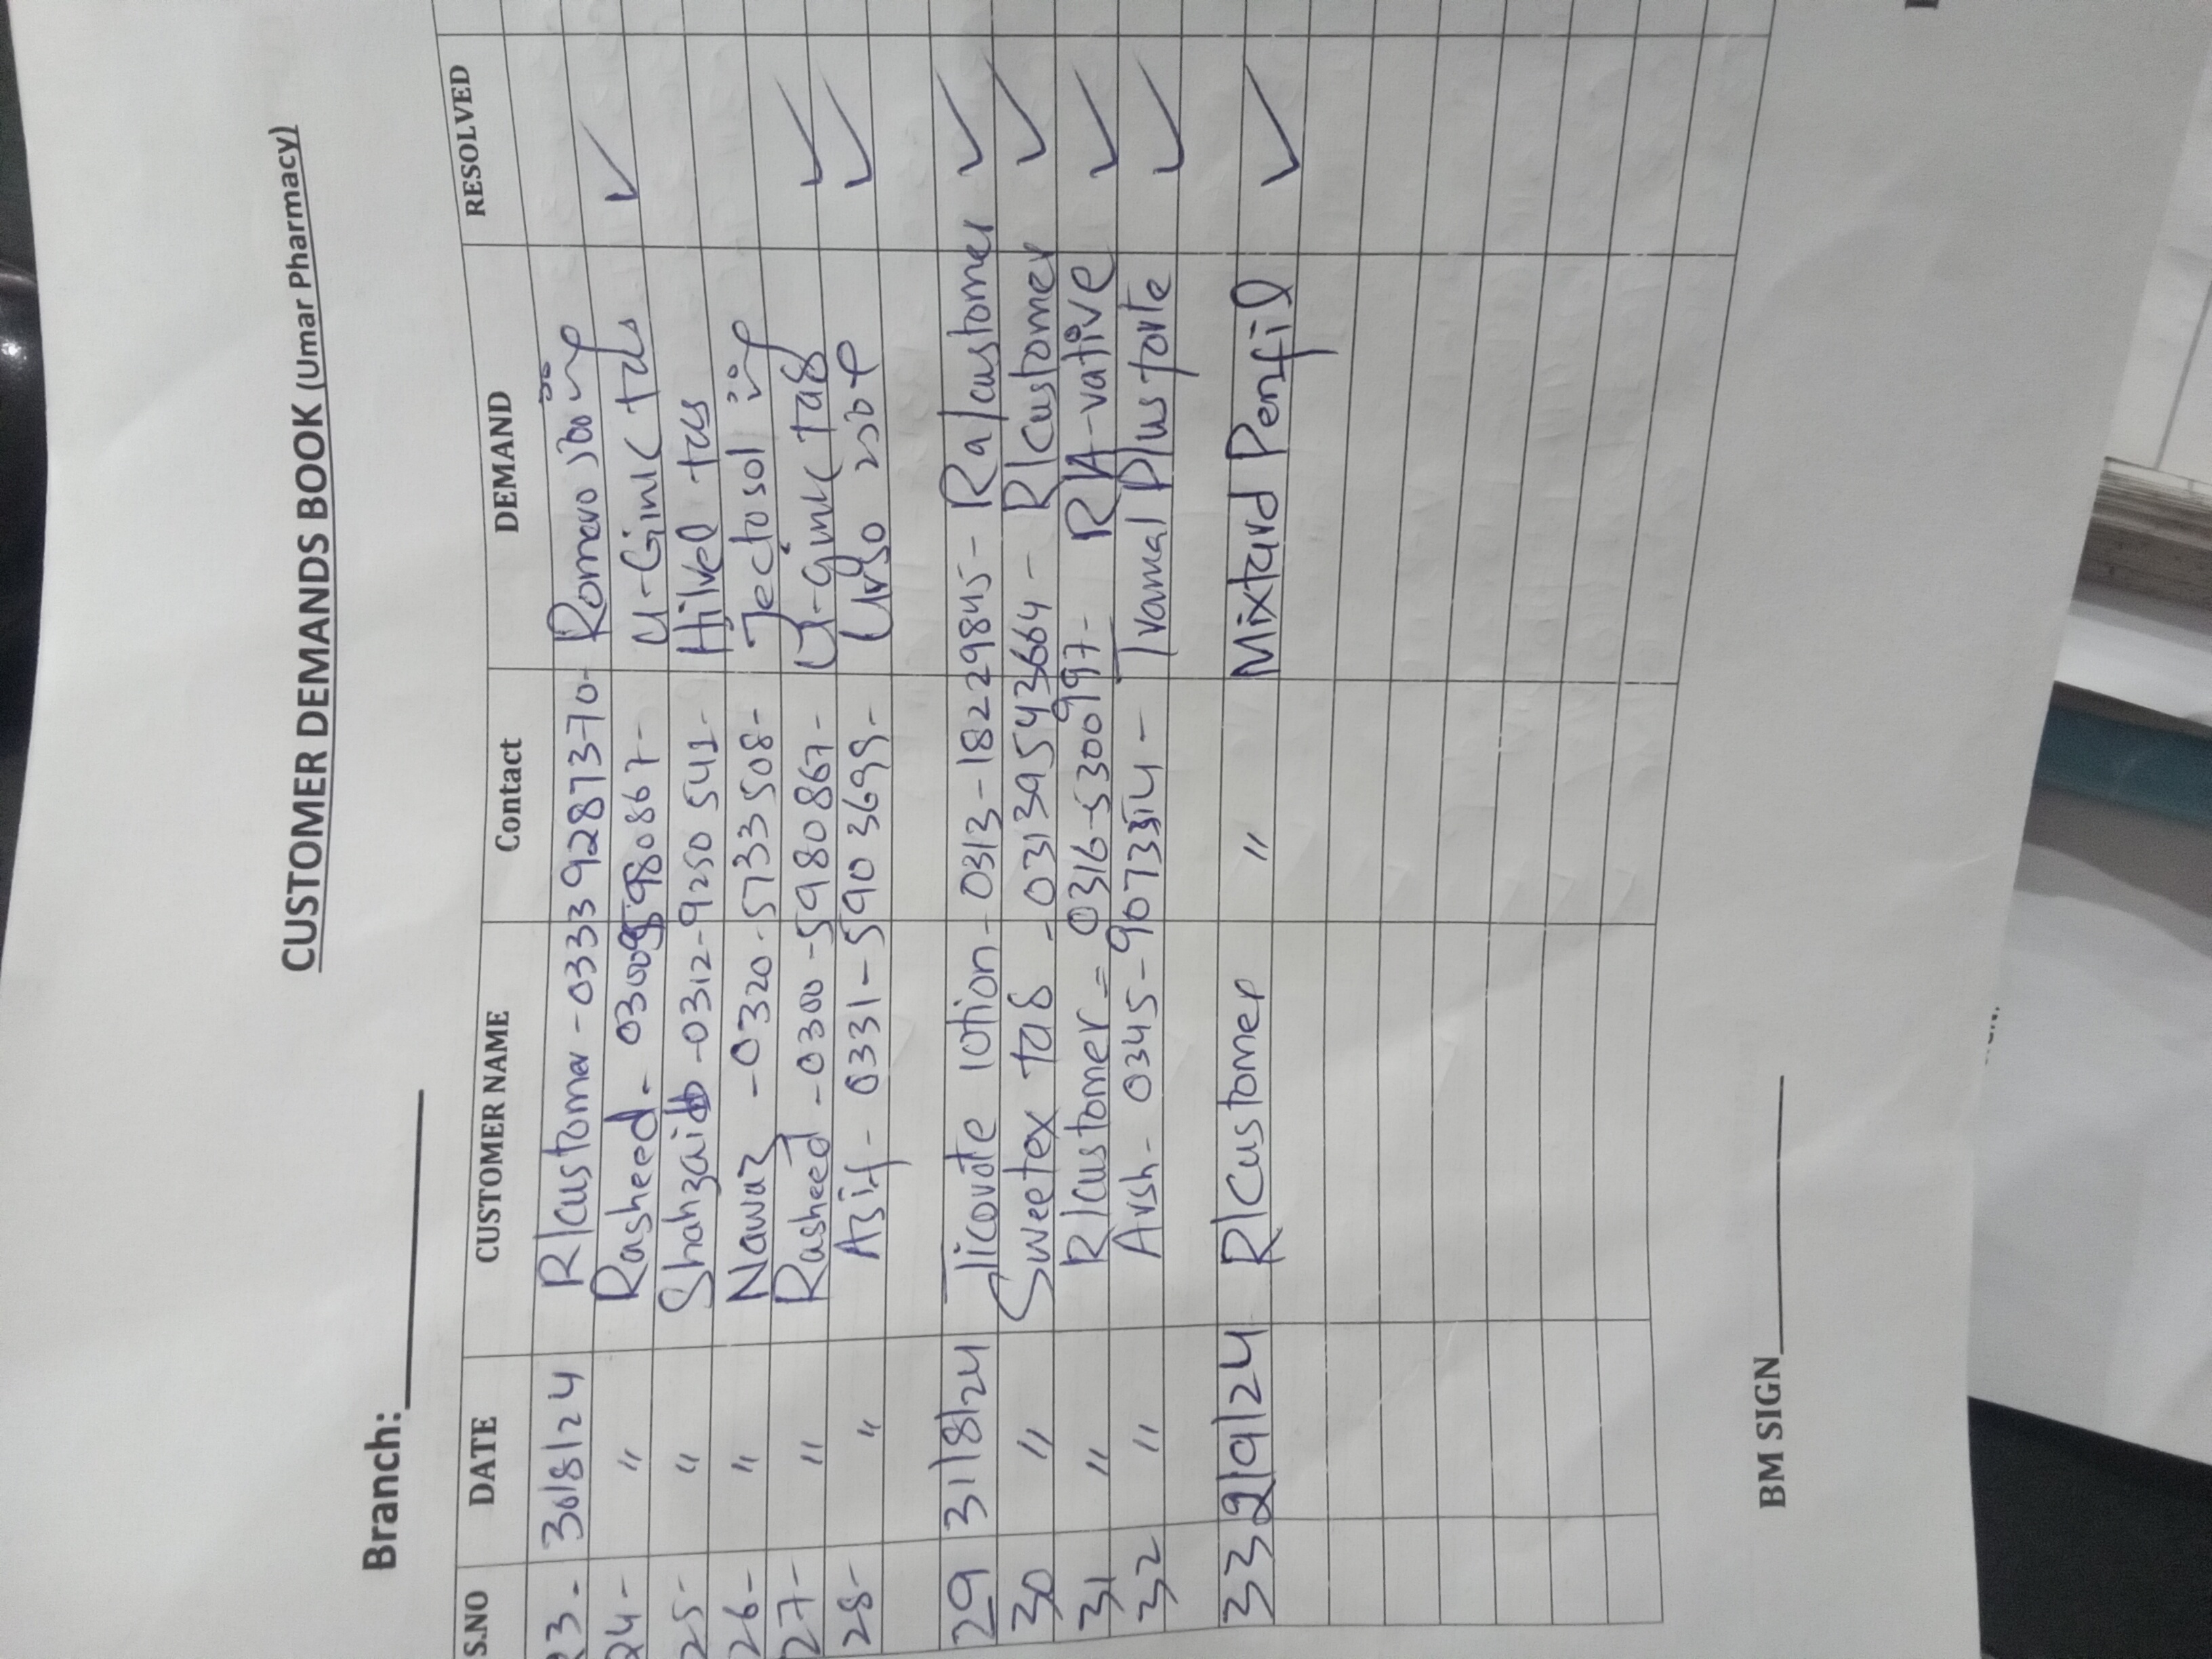 CUSTOMER DEMANDS BOOK (Umar Pharmacy)
Branch:
S.NO DATE CUSTOMER NAME Contact DEMAND RESOLVED
23- 30/8/24 R/customer - 03339287370-
24- " Rasheed - 5980867- U-Gimic tabs ✓
25- " Shahzaib -0312-9250541- Hilvel tabs
26- " Nawaz -0320-5733508- Jectosol inj
27- " Rasheed -0300-5980867- U-gimic tab ✓
28- " Asif - 0331-5903699- Urso ✓
29 31/8/24 Ticovate lotion - 0313-18229845- Ra/customer ✓
30 " Sweetex tab - 03139543664- R/customer ✓
31 " R/customer = 0316-5300997- RA-vative ✓
32 " Arsh - 0345- Tramal Plus forte ✓
33 2/9/24 R/Customer " Mixtard Penfil ✓
BM SIGN